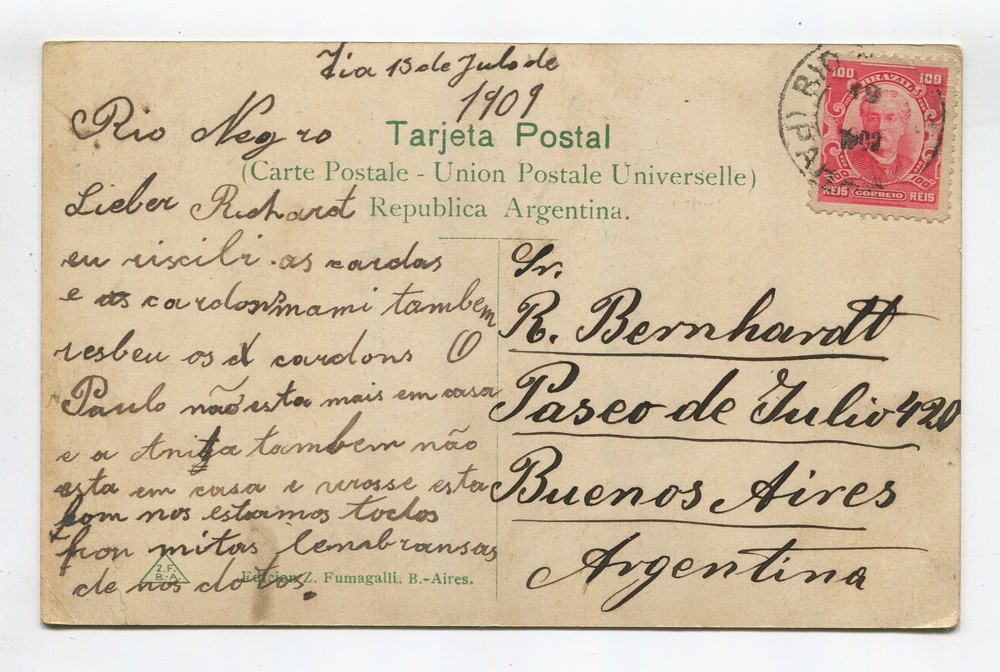 Dia 15 de Julo de
1909
Rio Negro
Tarjeta Postal
(Carte Postale - Union Postale Universelle)
Republica Argentina.
Lieber Richardt
eu riscibi as cardas
e as cardons mami tambem
resbeu os cardons O
Paulo não esta mais em casa
e a Anita tambem não
esta em casa e vosse esta
bom nos estamos todos
bon mitas lembransas
de nos dotos.
Z.F.
B-A.
Edicion Z. Fumagalli. B.-Aires.
Sr.
R. Bernhardt
Paseo de Julio 420
Buenos Aires
Argentina
100 BRAZIL 100
100 100
REIS CORREIO REIS
RIO